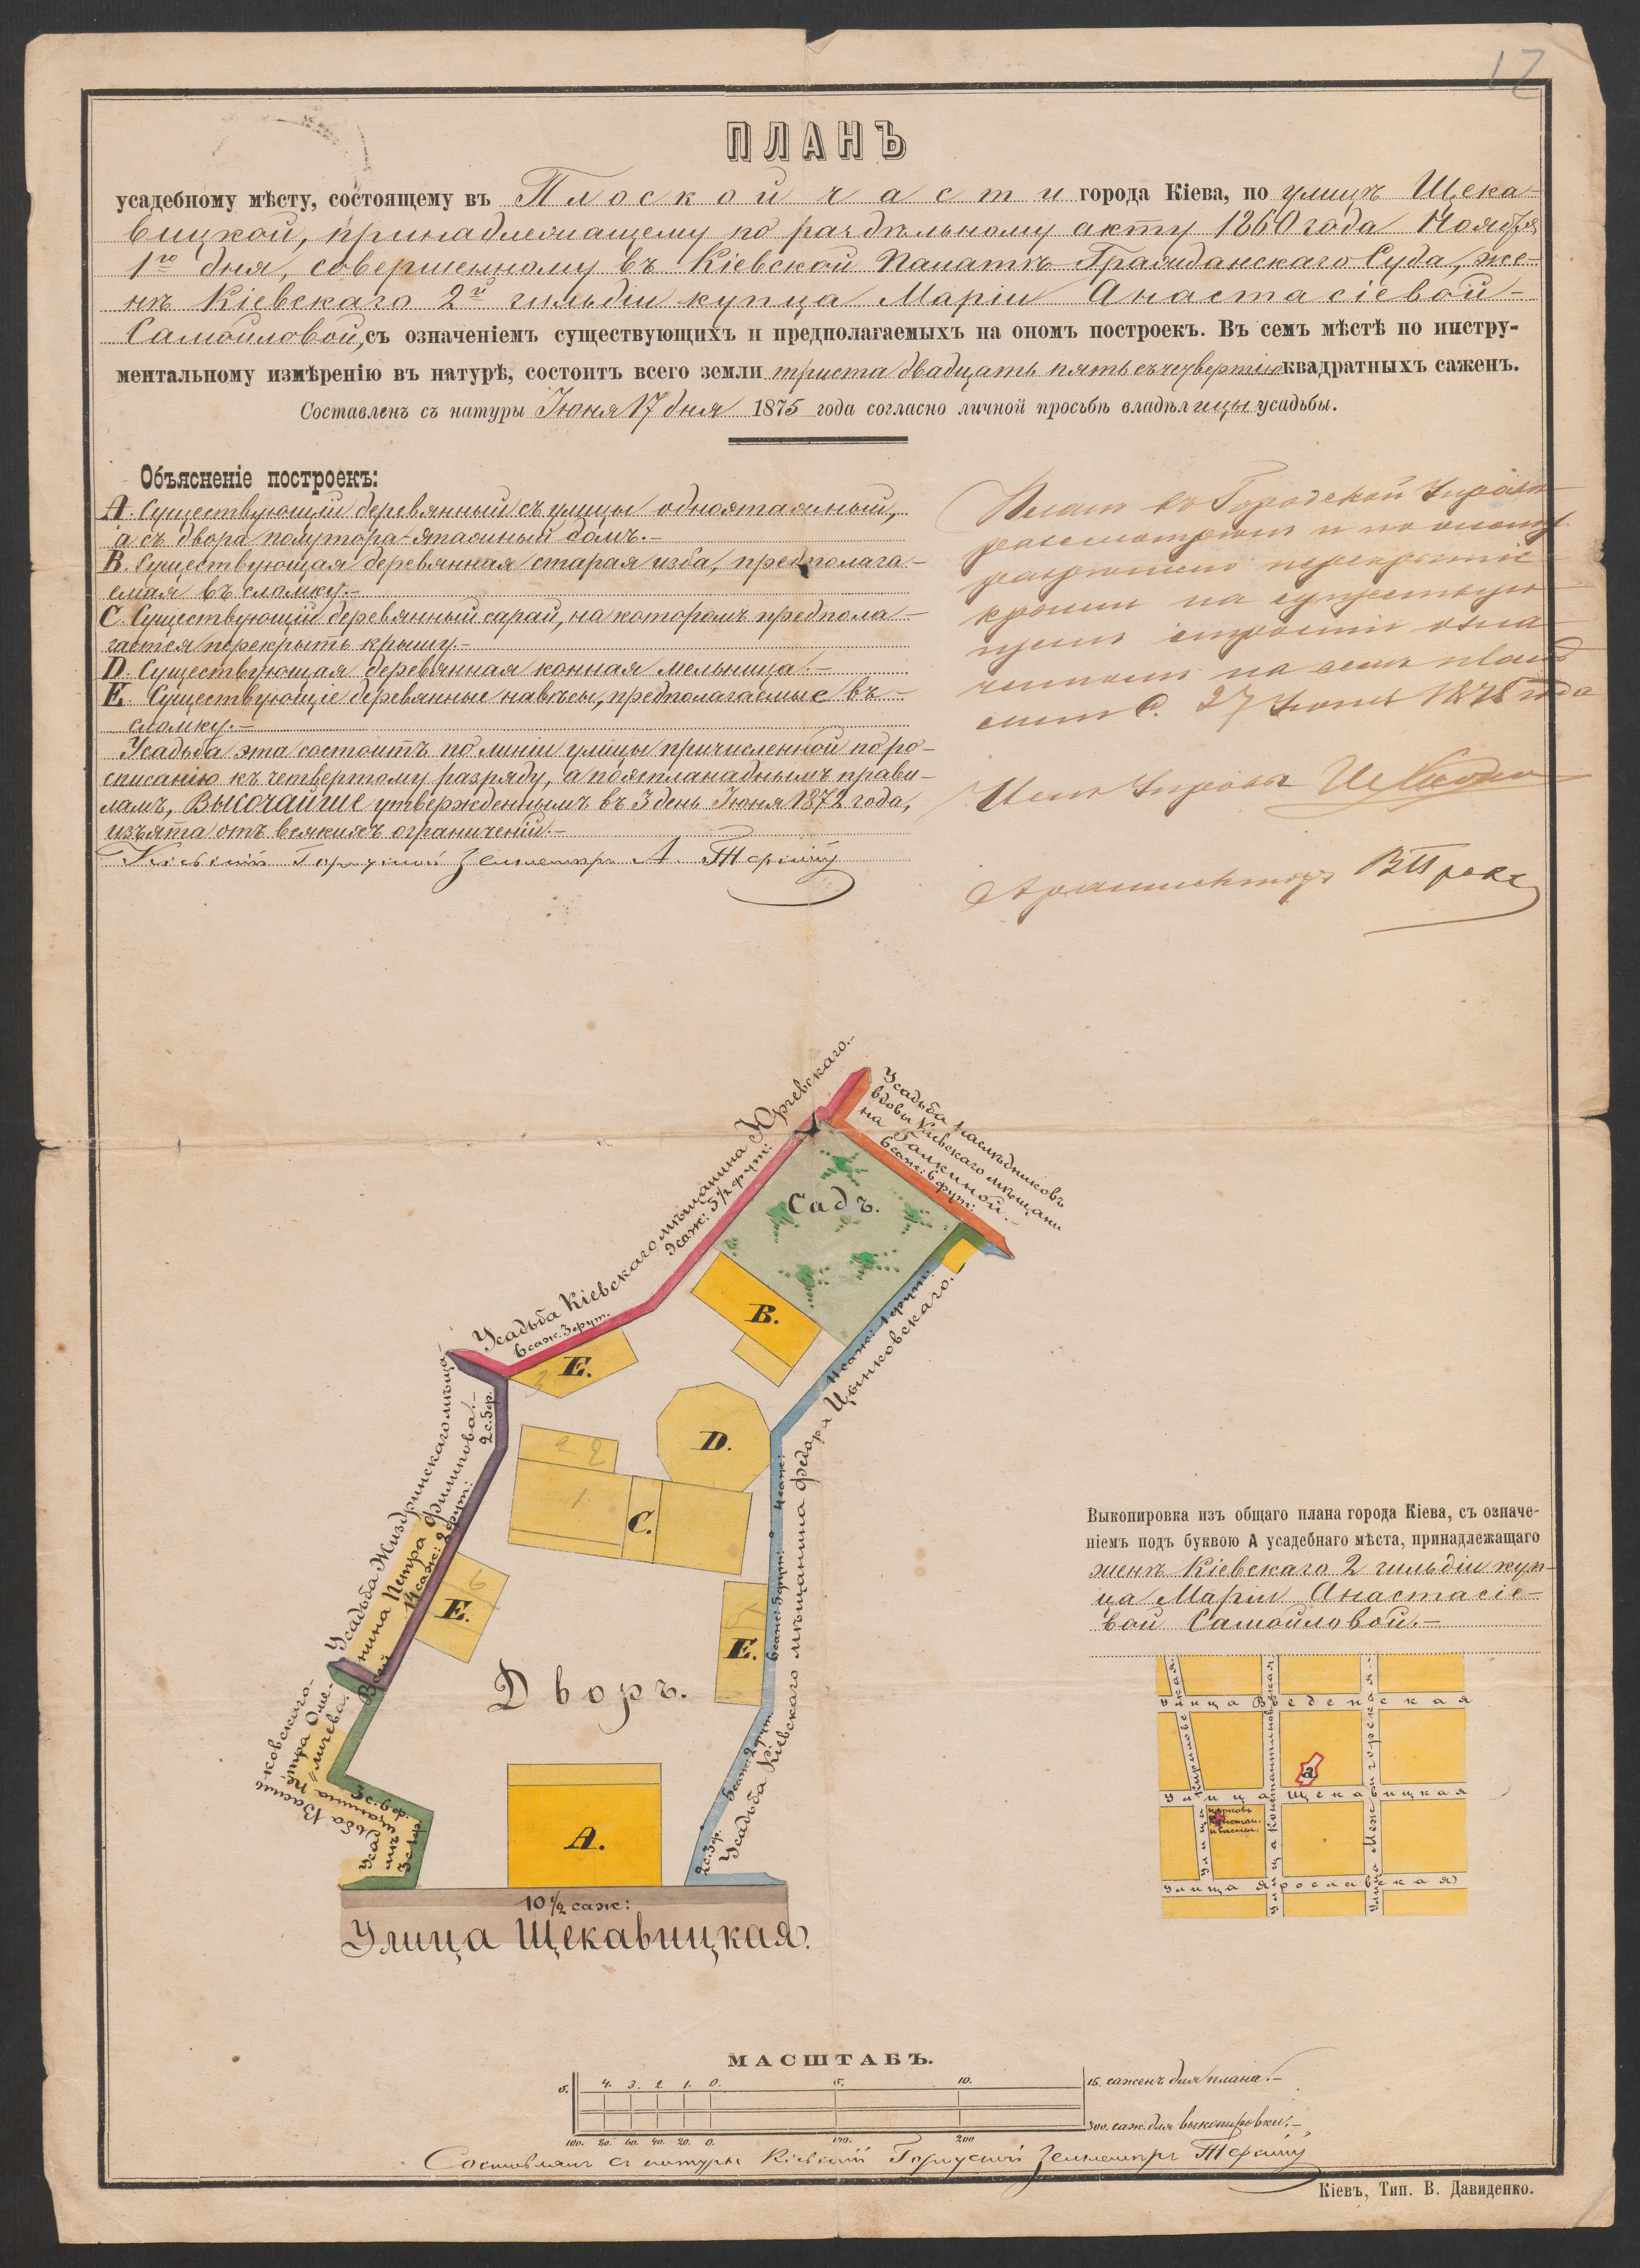 12
ПЛАНЪ
усадебному мѣсту, состоящему въ Плоской части города Кіева, по улицѣ Щека-
вицкой, принадлежащему по раздѣльному акту 1860 года Ноября
1го дня, совершенному въ Кіевской Палатѣ Гражданскаго Суда, же-
нѣ Кіевскаго 2й гильдіи купца Маріи Анастасіевой
Самойловой, съ означеніемъ существующихъ и предполагаемыхъ на ономъ построекъ. Въ семъ мѣстѣ по инстру-
ментальному измѣренію въ натурѣ, состоитъ всего земли триста двадцать пять съ четвертію квадратныхъ саженъ.
Составленъ съ натуры Іюня 17 дня 1875 года согласно личной просьбѣ владѣлицы усадьбы.
Объясненіе построекъ:
А. Существующій деревянный съ улицы одноэтажный,
а съ двора полутора-этажный домъ.-
В. Существующая деревянная старая изба, предполага-
емая въ сломку.-
С. Существующій деревянный сарай, на которомъ предпола-
гается перекрыть крышу.-
D. Существующая деревянная конная мельница.-
Е. Существующіе деревянные навѣсы, предполагаемые въ
сломку.-
Усадьба эта состоитъ по линіи улицы причисленной по ро-
списанію къ четвертому разряду, а по эспланаднымъ прави-
ламъ, Высочайше утвержденнымъ въ 3 день Іюня 1872 года,
изъята отъ всякихъ ограниченій.-
Кіевскій Городской Землемѣръ А.
Планъ въ Городской Управѣ
разсмотрѣнъ и по оному
разрѣшено перекрытіе
крыши на существую-
щемъ строеніи озна-
ченномъ на семъ планѣ
С. 27 Іюня 1875 года
Членъ Управы
Архитекторъ
Усадьба Кіевскаго мѣщанина Юргевскаго.-
9 саж: 5 1/2 фут:
6 саж. 3 фут.
Усадьба наслѣдниковъ
вдовы Кіевскаго мѣщани
на Галкиной.-
6 саж: 6 фут:
Садъ.
В.
Е.
3
D.
2
1
С.
6
Е.
5
Е.
Дворъ.
А.
Усадьба Жиздринскаго мѣща-
нина Петра Филипова.-
2 с. 5 ф.
14 саж: 2 фут:
Усадьба Васильковскаго
мѣщанина Петра Оме-
личева.
3 с. 6 ф.
3 с. 1 ф.
11 саж: 1 фут:
4 саж:
6 саж: 5 фут:
5 саж. 2 фут
2 с. 3 ф.
Усадьба Кіевскаго мѣщанина Федора Цынковскаго.
10 1/2 саж:
Улица Щекавицкая.
Выкопировка изъ общаго плана города Кіева, съ означе-
ніемъ подъ буквою А усадебнаго мѣста, принадлежащаго
женѣ Кіевскаго 2 гильдіи куп-
ца Маріи Анастасіе-
вой Самойловой.-
Улица Введенская
Улица Кириловская
Улица Константиновская
Улица Межигорская
а
Улица Щекавицкая
церковь
Констан.
и Елены.
Улица Ярославская
МАСШТАБЪ.
5. 4. 3. 2. 1. 0. 5. 10. 15. саженъ для плана.-
100. 80. 60. 40. 20. 0. 100. 200 300. саж. для выкопировки.-
Составлялъ съ натуры Кіевскій Городской Землемѣръ
Кіевъ, Тип. В. Давиденко.